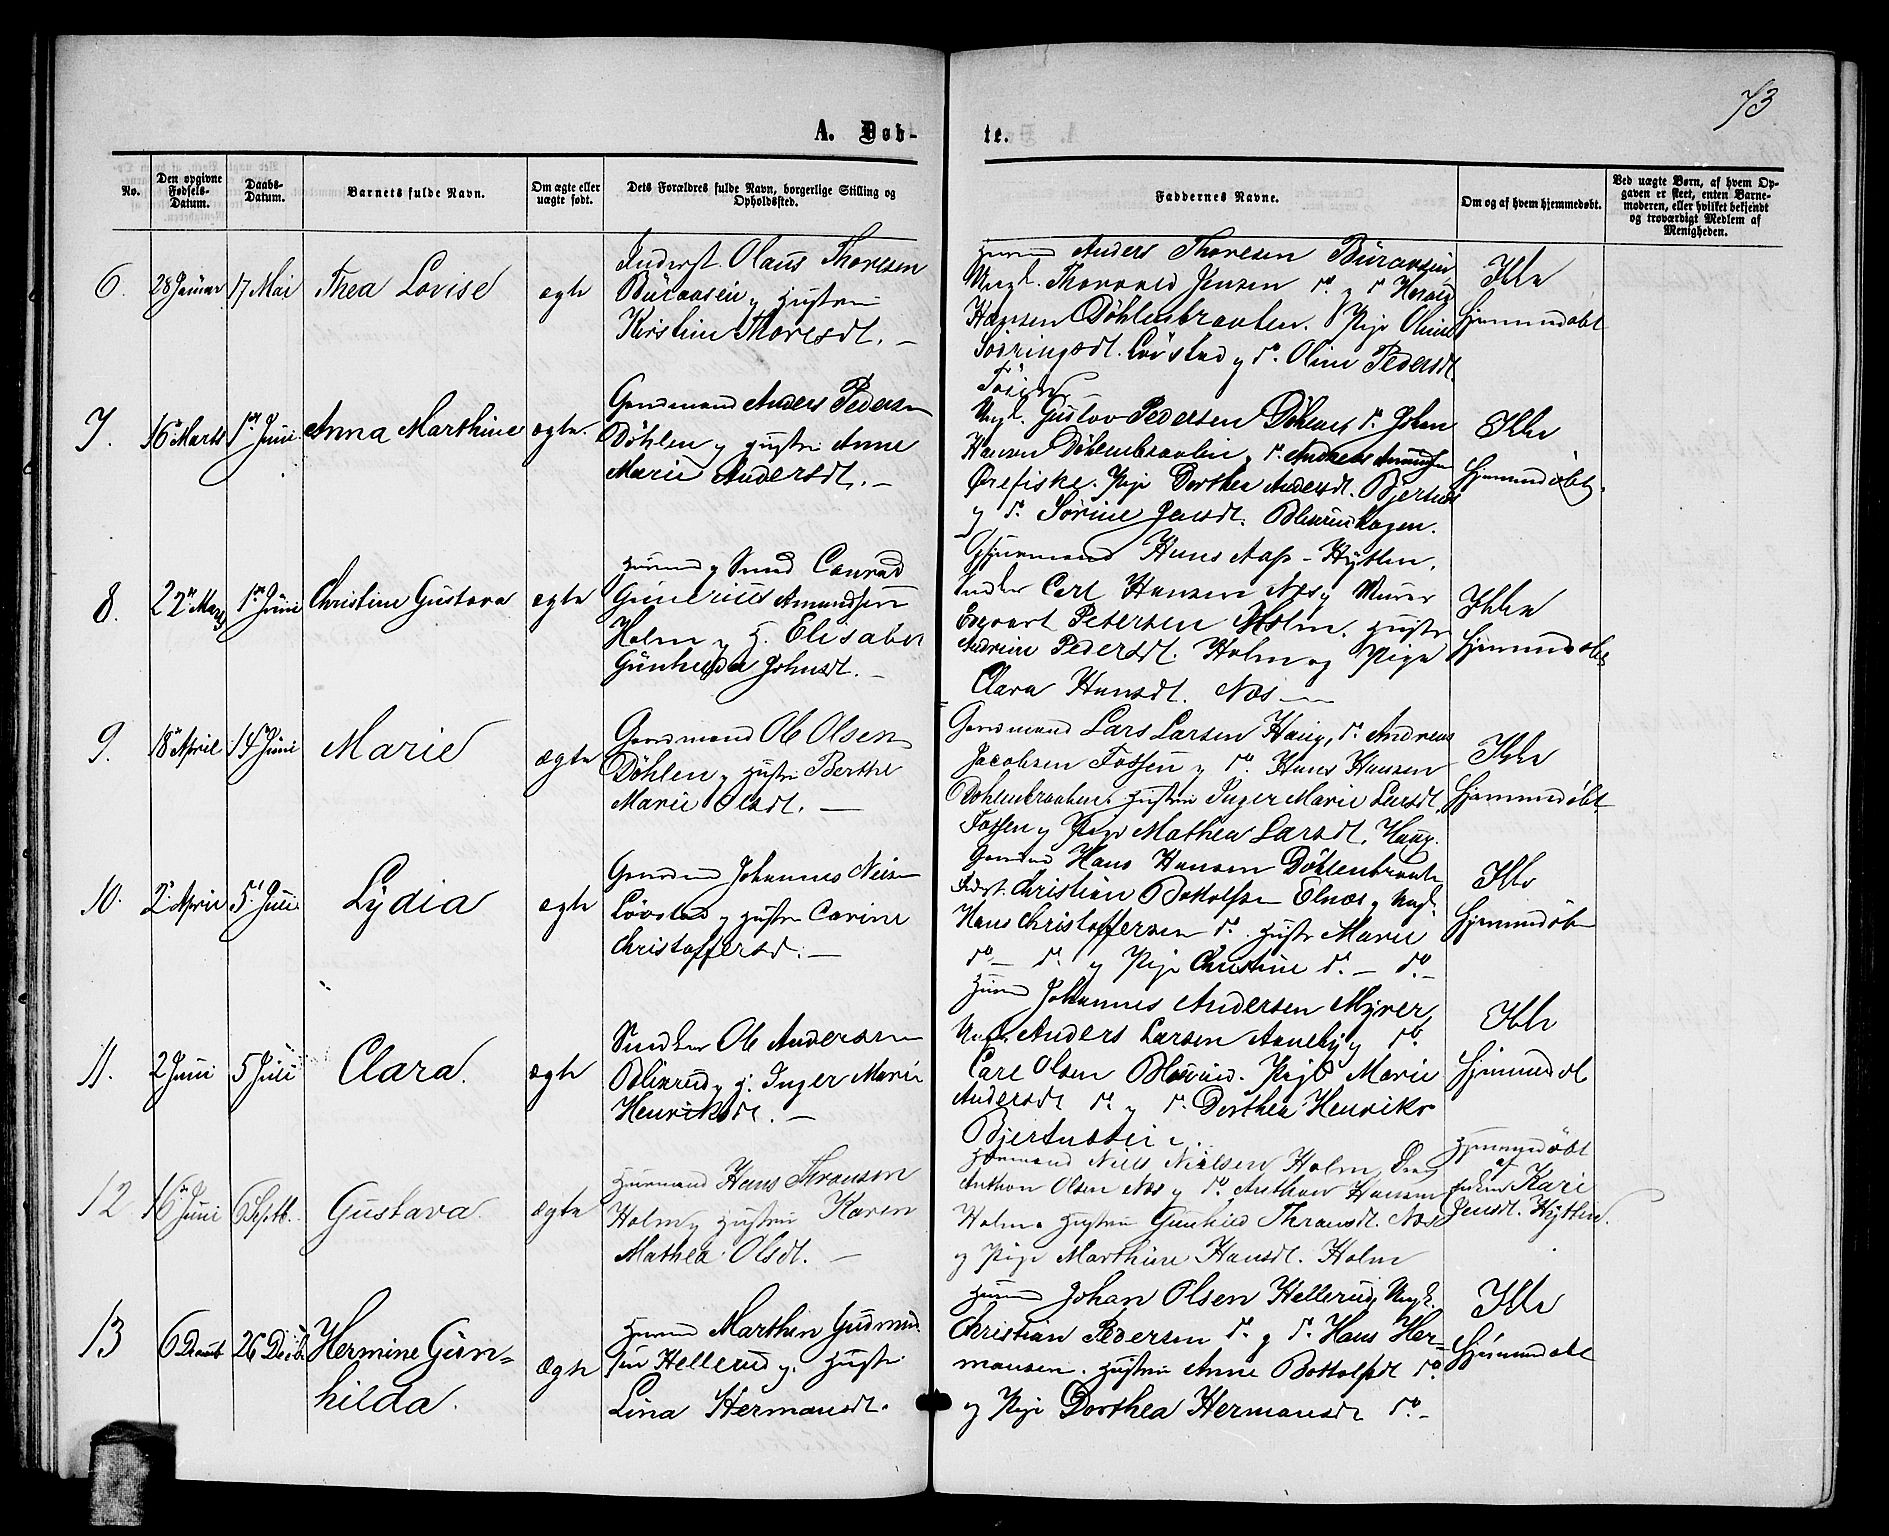 73
A. Døb-
te.
No.
Den opgivne Fødsels-Datum.
Daabs-Datum.
Barnets fulde Navn.
Om ægte eller uægte født.
Dets Forældres fulde Navn, borgerlige Stilling og Opholdssted.
Faddernes Navne.
Om og af hvem hjemmedøbt.
Ved uægte Børn, af hvem Op-
gaven er skeet, enten Barne-
moderen, eller hvilket bekjendt
og troværdigt Medlem af
Menigheden.
6.
28 Januar
17 Mai
Thea Lovise
ægte
Inderst. Olaus Thoresen
Buraasen og Hustru
Kirstine Thoresdt. –
Anders Thoresen Buraasen
Ungk. Thorvald Jensen do. og do
Hansen Døhlenbraaten. Pige Oline
Løvstad og do. Oline Pedersdt.
Ikke
hjemmedøbt
7.
16 Marts
1ste Juni
Anna Marthine
ægte.
Gaardmand Anders Pedersen
Døhlen og Hustru Anne
Marie Andersdt. –
Ungk. Gustav Pedersen Døhlen, do. Johan
Hansen Døhlenbraaten, do. Andreas Amundsen
Ørefiske. Pige Dorthea Andersdt. Bjertnæs
og do. Sørine Jensdt.
Ikke
hjemmedøbt.
8.
22de Marts
1ste Juni
Christine Gustava
ægte
Husmd og Smed Conrad
Gunerius Amundsen
Holm og H. Elisabet
Gunhilda Johnsdt. –
Hans Aas – Hytten.
Carl Hansen Næs og Murer
Petersen Holm. Hustru
Andrine Pedersdt. Holm og Pige
Clara Hansdt. Næs –
Ikke
hjemmedøbt
9.
18 April
14 Juni
Marie
ægte
Gaardmand Ole Olsen
Døhlen og Hustru Berthe
Marie Olsdt. –
Gaardmand Lars Larsen Haug, do. Andreas
Jacobsen Fossen og do. Hans Hansen
Døhlenbraaten. Hustru Inger Marie Larsdt.
Fossen og Pige Mathea Larsdt. Haug.
Ikke
hjemmedøbt
10.
2 April
5 Juli
Lydia
ægte
Johannes
Løvstad og Hustru Carine
Christoffersd. –
Hans Hansen Døhlenbraaten
Christian Bottolfsen Elnæs og Ungk.
Hans Christoffersen do. Hustru Marie
do – do. og Pige Christine do. – do. –
Ikke
hjemmedøbt
11.
2 Juni
5 Juli
Clara.
ægte
Snedker Ole Andersen
Blixrud og H. Inger Marie
Henriksdt. –
Johannes Andersen Myrer,
Ungk. Anders Larsen Aaneby og do
Carl Olsen Blixrud. Pige Marie
Andersdt do. og do. Dorthea Henriks
Ikke
hjemmedøbt
12
16 Juni
6 Septb.
Gustava
ægte
Husmand Hans Thransen
Holm og Hustru Karen
Mathea Olsdt. –
Husmand Niels Nielsen Holm,
Anthon Olsen Næs og do. Anthon Hansen
Holm. Hustru Gunhild Thransdt. Næs
og Pige Marthine Hansdt. Holm
Hjemmedøbt
af
Kari
Jensdt. Hytten.
13
6 Decmb
26 Decb.
Hermine Gun-
hilda.
Ægte
Husmd Marthin Gudmund-
sen Hellerud og Hustru
Lina Hermansdt.
Husmd Johan Olsen Hellerud, Ungk.
Christian Pedersen do. og do. Hans Her-
mansen. Hustru Anne Bottolfsdt do.
og Pige Dorthea Hermansdt do. –
Ikke
hjemmedøbt